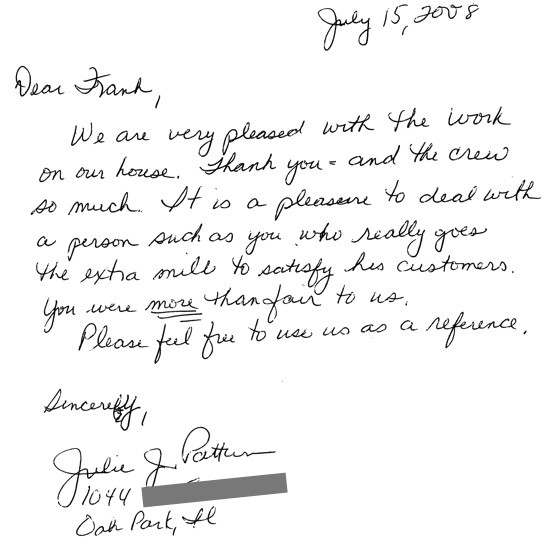 July 15, 2008
Dear Frank,
We are very pleased with the work
on our house. Thank you - and the crew
so much. It is a pleasure to deal with
a person such as you who really goes
the extra mill to satisfy his customers.
You were more than fair to us.
Please feel free to use us as a reference.
Sincerely,
Julie J.
1044
Oak Park, Il